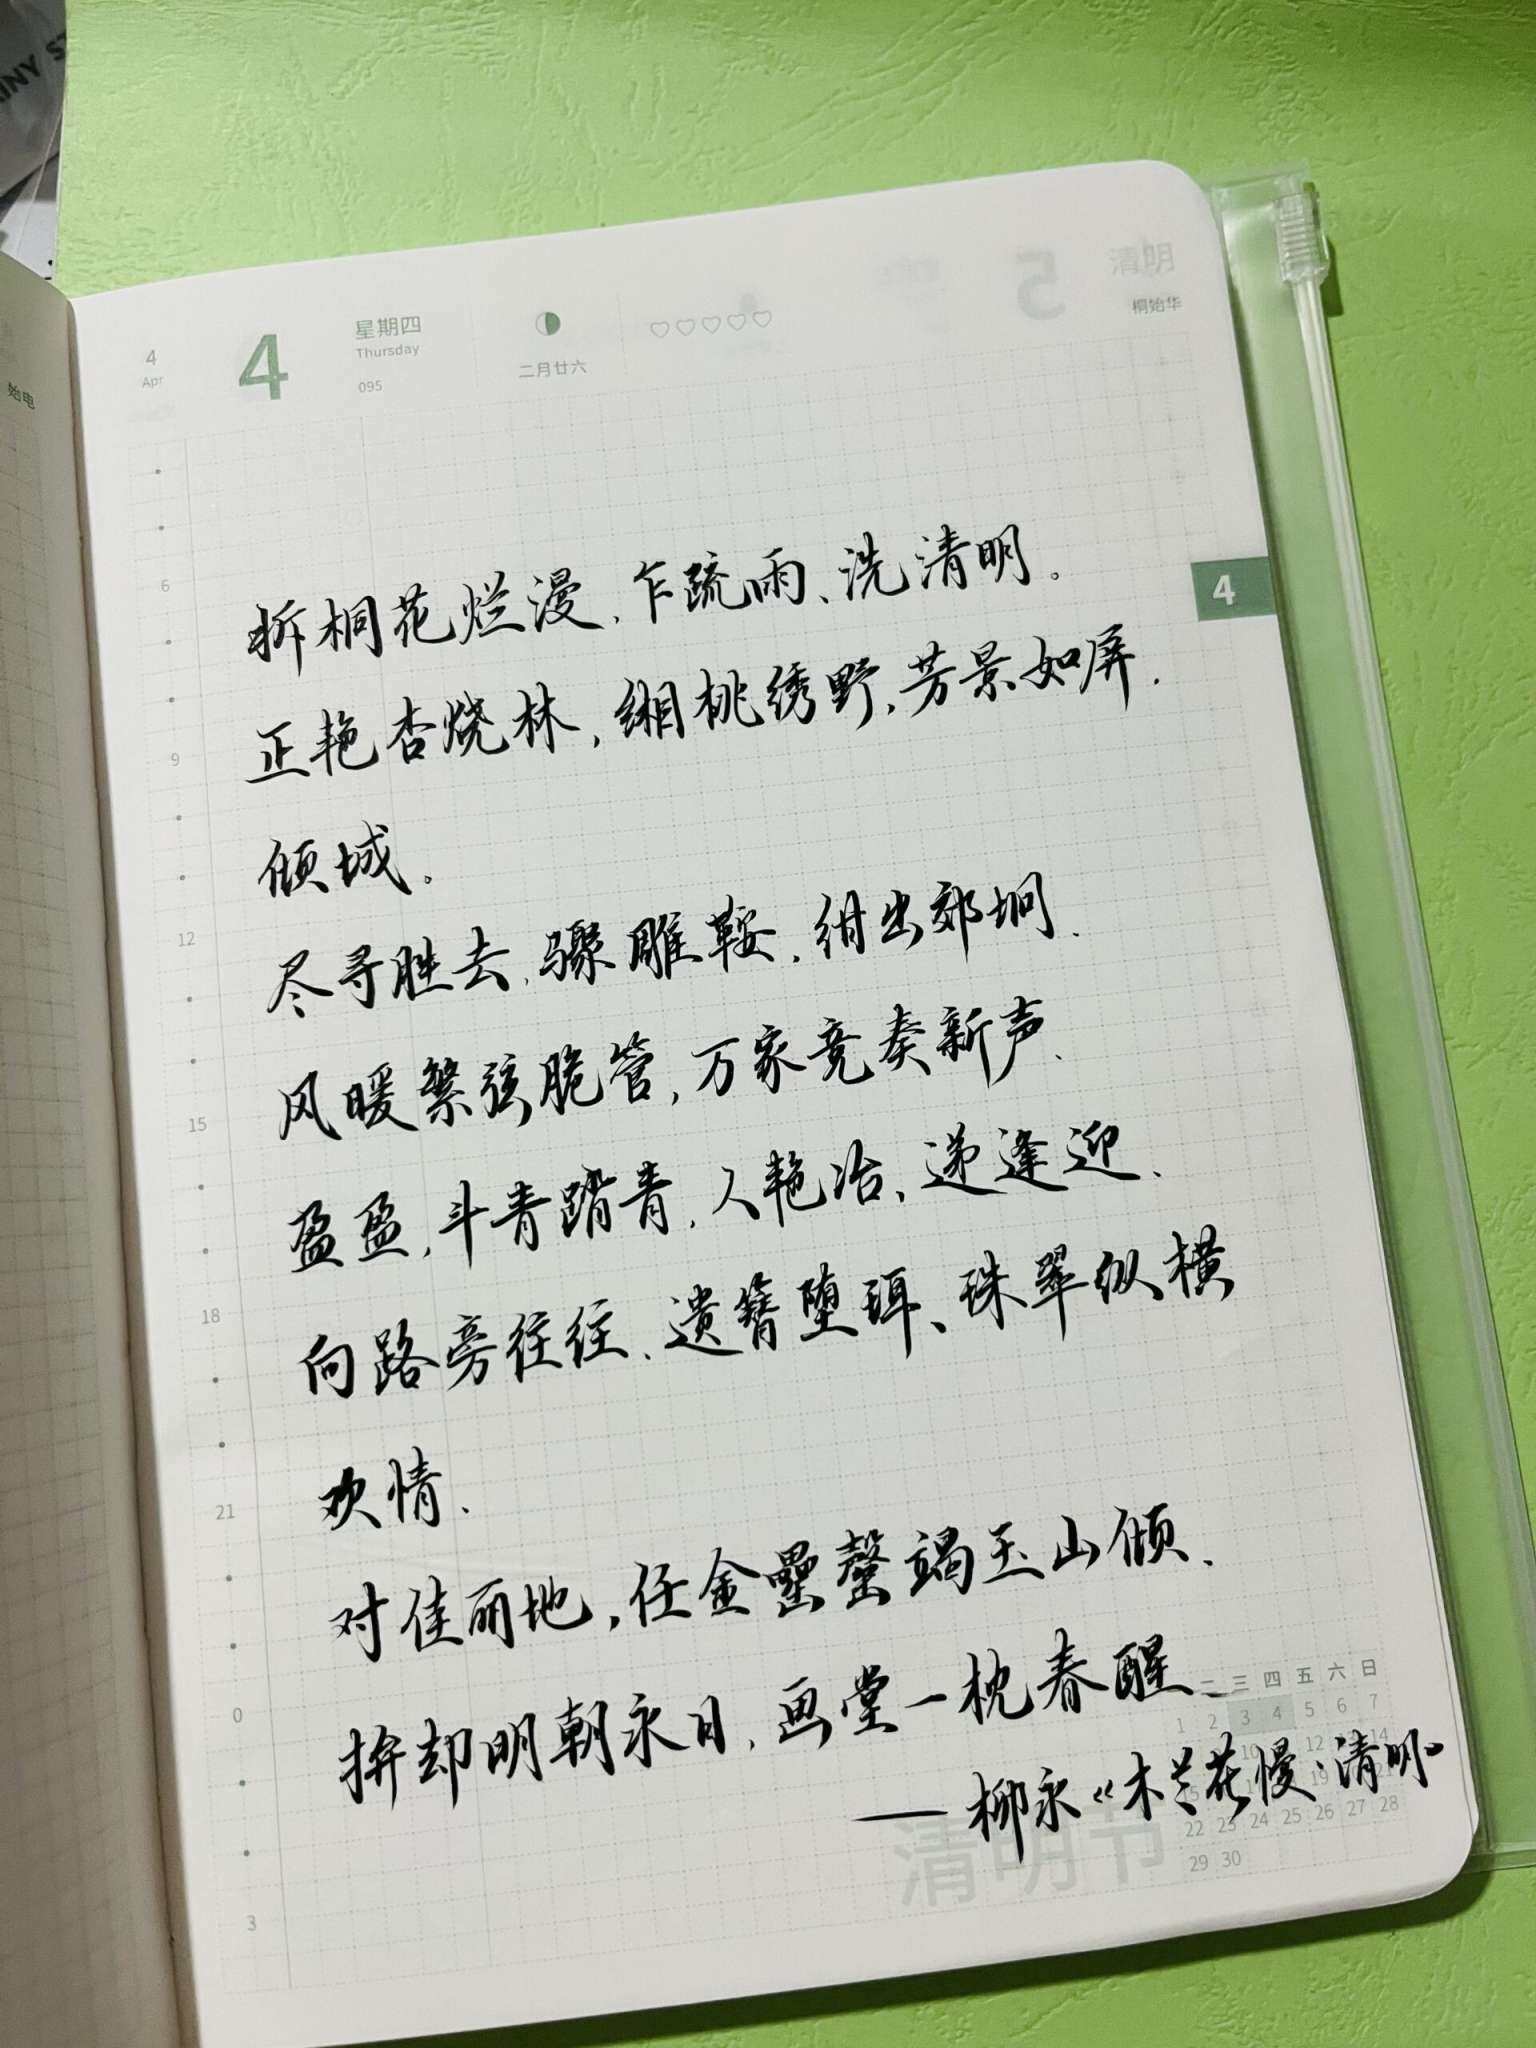 4
Apr
4
星期四
Thursday
095
二月廿六
清明
桐始华
5
始电
4
拆桐花烂漫，乍疏雨、洗清明。
正艳杏烧林，缃桃绣野，芳景如屏．
倾城。
尽寻胜去，骤雕鞍，绀出郊坰．
风暖繁弦脆管，万家竞奏新声．
盈盈，斗青踏青，人艳冶、递逢迎．
向路旁往往、遗簪堕珥、珠翠纵横
欢情．
对佳丽地，任金罍罄竭玉山倾．
拚却明朝永日，画堂一枕春醒
——柳永《木兰花慢·清明》
6
9
12
15
18
21
0
3
二 三 四 五 六 日
1 2 3 4 5 6 7
10 12 14
19
22 23 24 25 26 27 28
29 30
清明节